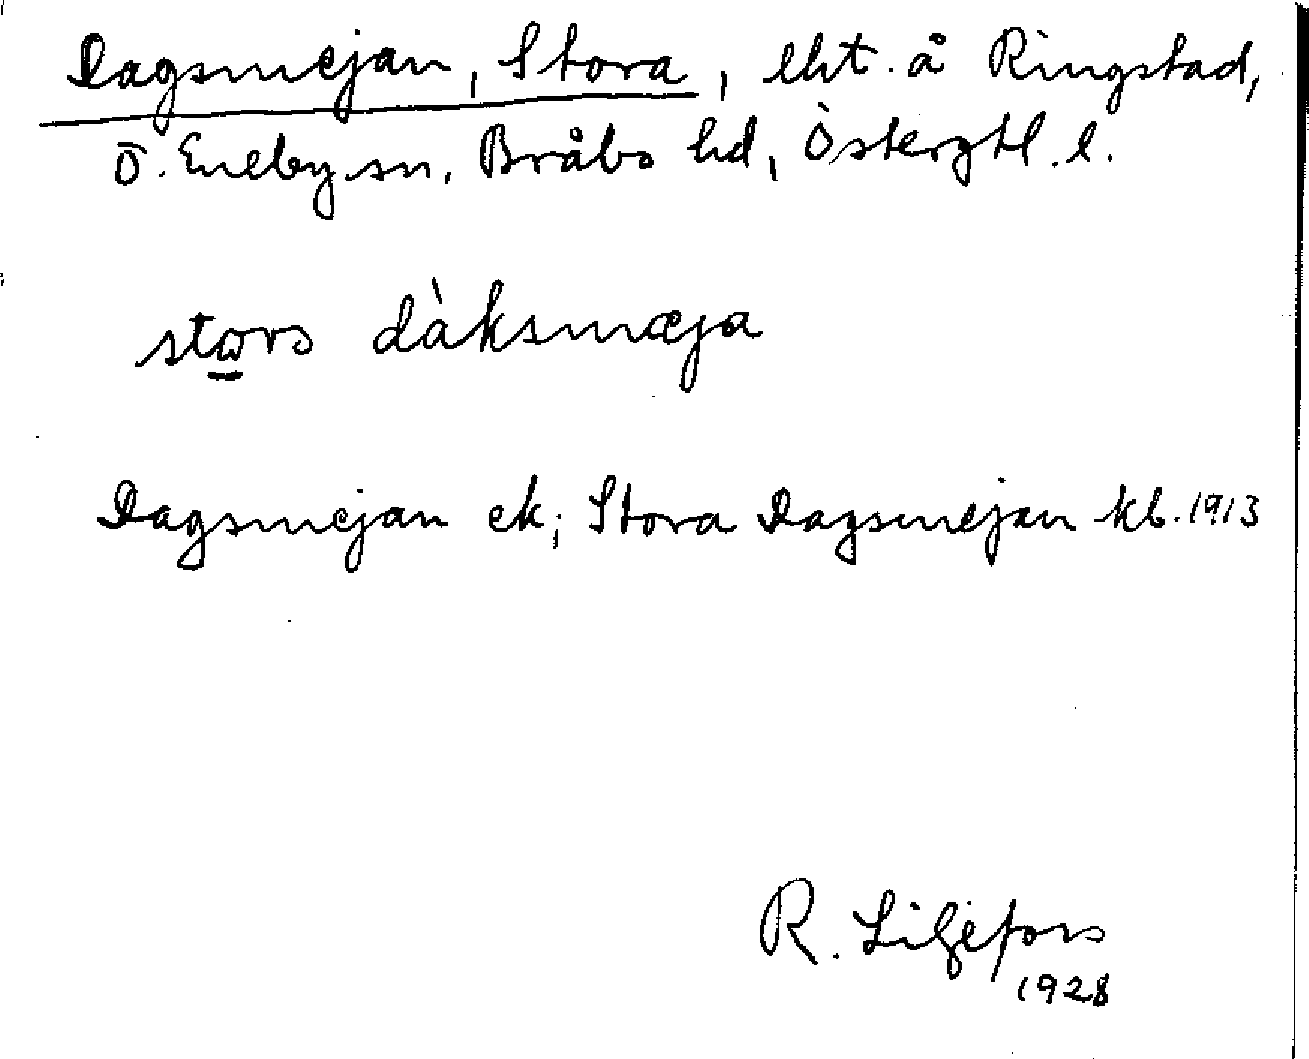 Dagsmejan, Stora, lht. å Ringstad,
Ö. Eneby sn, Bråbo hd, Östergtl. l.
dàksmæja
Dagsmejan ek; Stora Dagsmejan kb. 1913
R. Liljefors
1928